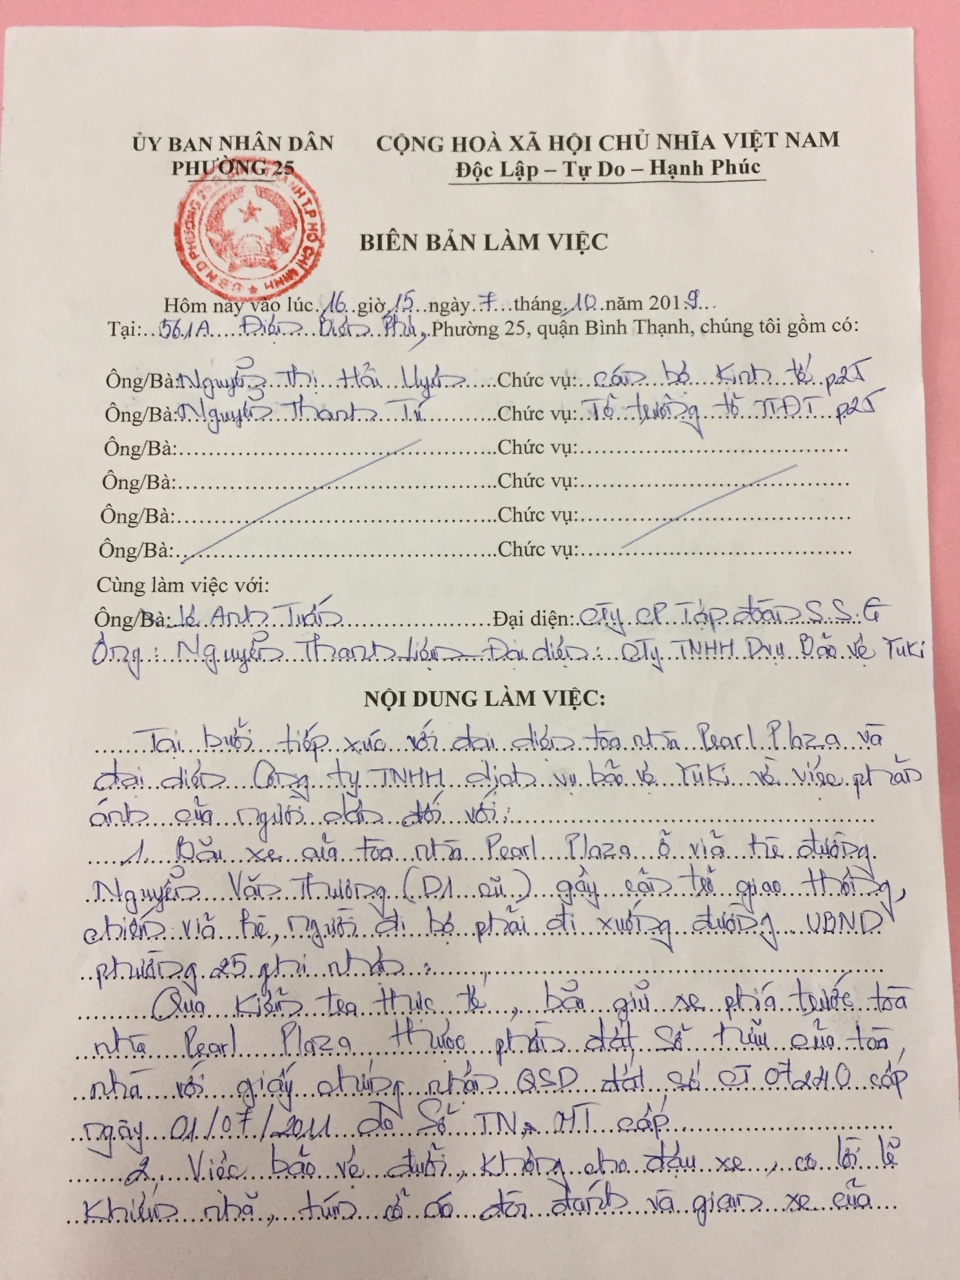 ỦY BAN NHÂN DÂN CỘNG HOÀ XÃ HỘI CHỦ NHĨA VIỆT NAM
PHƯỜNG 25 Độc Lập – Tự Do – Hạnh Phúc
BIÊN BẢN LÀM VIỆC
Hôm nay vào lúc 16 giờ 15 ngày 7 tháng 10 năm 2019
Tại: 561A Điện Biên Phủ, Phường 25, quận Bình Thạnh, chúng tôi gồm có:
Ông/Bà: Nguyễn Thị Hải Uyên Chức vụ: cán bộ Kinh tế p25
Ông/Bà: Nguyễn Thanh Tú Chức vụ: Tổ trưởng tổ TTĐT p25
Ông/Bà: Chức vụ:
Ông/Bà: Chức vụ:
Ông/Bà: Chức vụ:
Ông/Bà: Chức vụ:
Cùng làm việc với:
Ông/Bà: Lê Anh Tuấn Đại diện: CTy CP Tập đoàn S.S.G
Ông: Nguyễn Thanh Liêm Đại diện: CTy TNHH Dvụ Bảo vệ Yuki
NỘI DUNG LÀM VIỆC:
Tại buổi tiếp xúc với đại diện tòa nhà Pearl Plaza và
đại diện Công ty TNHH dịch vụ bảo vệ Yuki về việc phản
ánh của người dân đối với:
1. Bãi xe của tòa nhà Pearl Plaza ở vỉa hè đường
Nguyễn Văn Thương (D1 cũ) gây cản trở giao thông,
chiếm vỉa hè, người đi bộ phải đi xuống đường UBND
phường 25 ghi nhận:
Qua kiểm tra thực tế, bãi giữ xe phía trước tòa
nhà Pearl Plaza thuộc phần đất sở hữu của tòa
nhà với giấy chứng nhận QSD đất số CT 07210 cấp
ngày 01/07/2011 do Sở TN MT cấp
2. Việc bảo vệ đuổi, không cho đậu xe, có lời lẽ
khiếm nhã, túm cổ áo đòi đánh và giam xe của